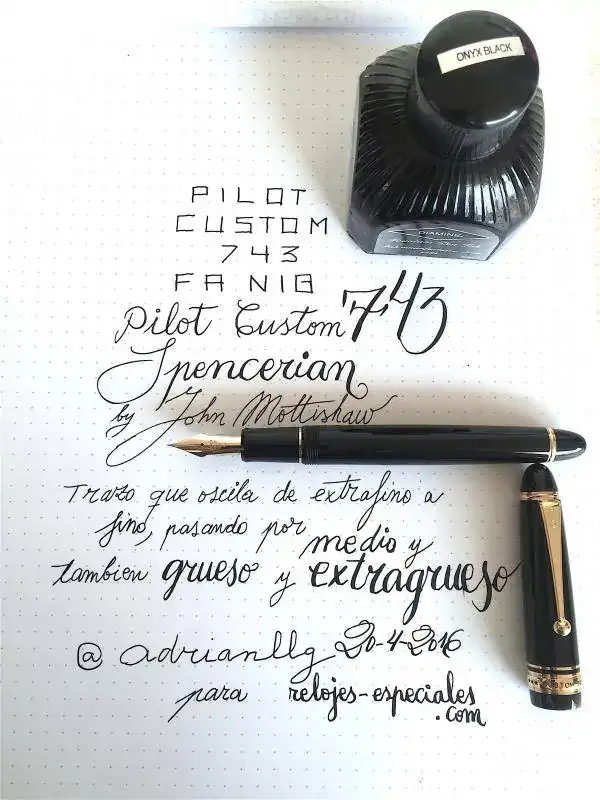 ONYX BLACK
DIAMINE
PILOT
CUSTOM
743
FA NIB
Pilot Custom 743
Spencerian
by John Mottishaw
Trazo que oscila de extrafino a
fino, pasando por medio y
tambien grueso y extragrueso
@adrianllg 20-4-2016
para relojes-especiales
.com